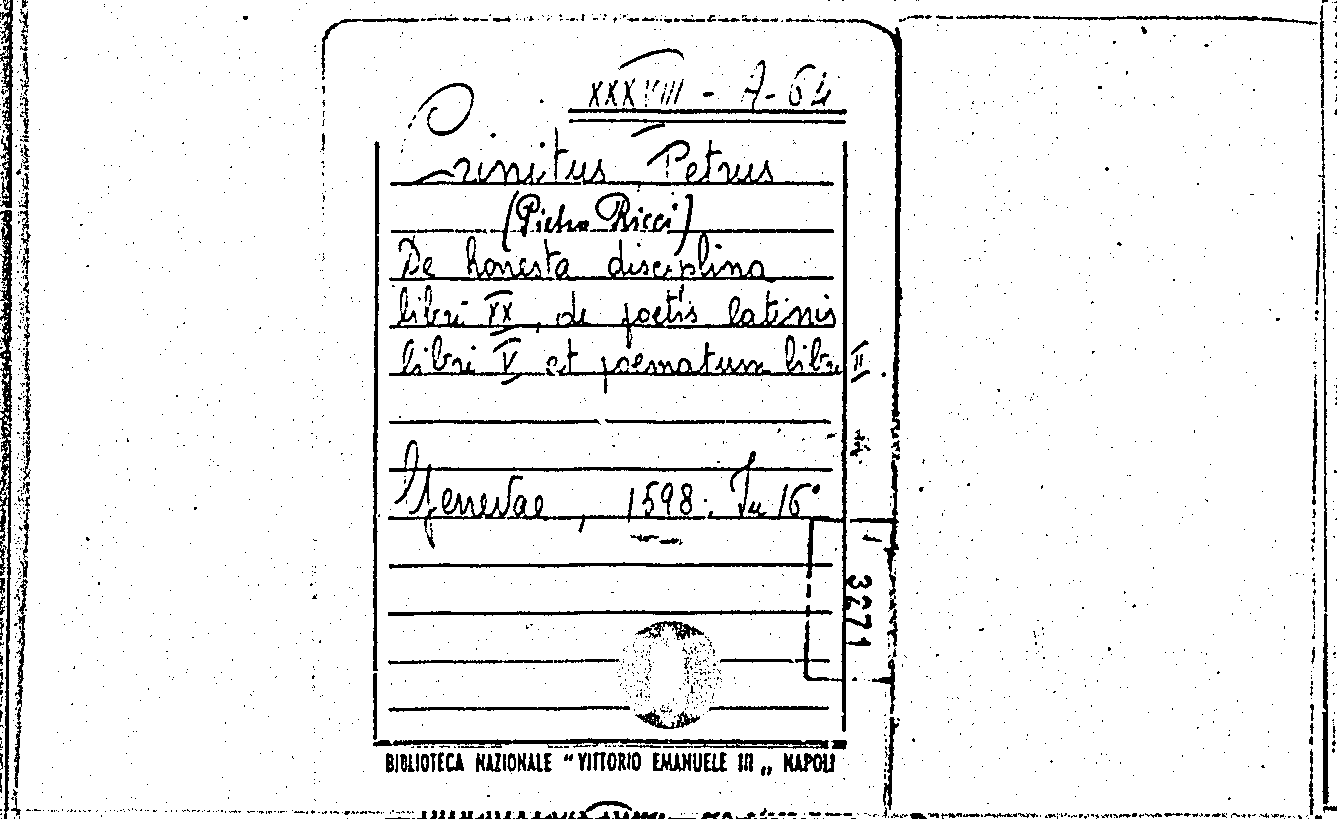 XXXVIII - A - 64
Crinitus Petrus
(Pietro Ricci)
De honesta disciplina
libri XX, de poetis latinis
libri V et poematum libri II.
Genevae, 1598. In 16°
3271
BIBLIOTECA NAZIONALE "VITTORIO EMANUELE III „ NAPOLI